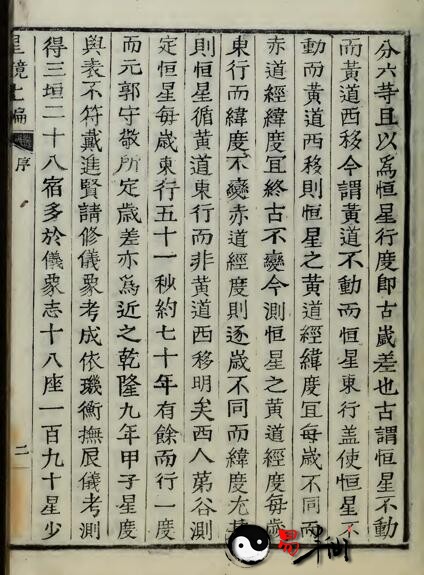 分六等且以為恒星行度即古歲差也古謂恒星不動
而黃道西移今謂黃道不動而恒星東行盖使恒星不
動而黃道西移則恒星之黃道經緯度宜每歲不同而
赤道經緯度宜終古不變今測恒星之黃道經度每歲
東行而緯度不變赤道經度則逐歲不同而緯度尤甚
則恒星循黃道東行而非黃道西移明矣西人第谷測
定恒星每歲東行五十一秒約七十年有餘而行一度
而元郭守敬所定歲差亦為近之乾隆九年甲子星度
與表不符戴進賢請修儀象考成依璣衡撫辰儀考測
得三垣二十八宿多於儀象志十八座一百九十星少
星鏡七編
序
二
易